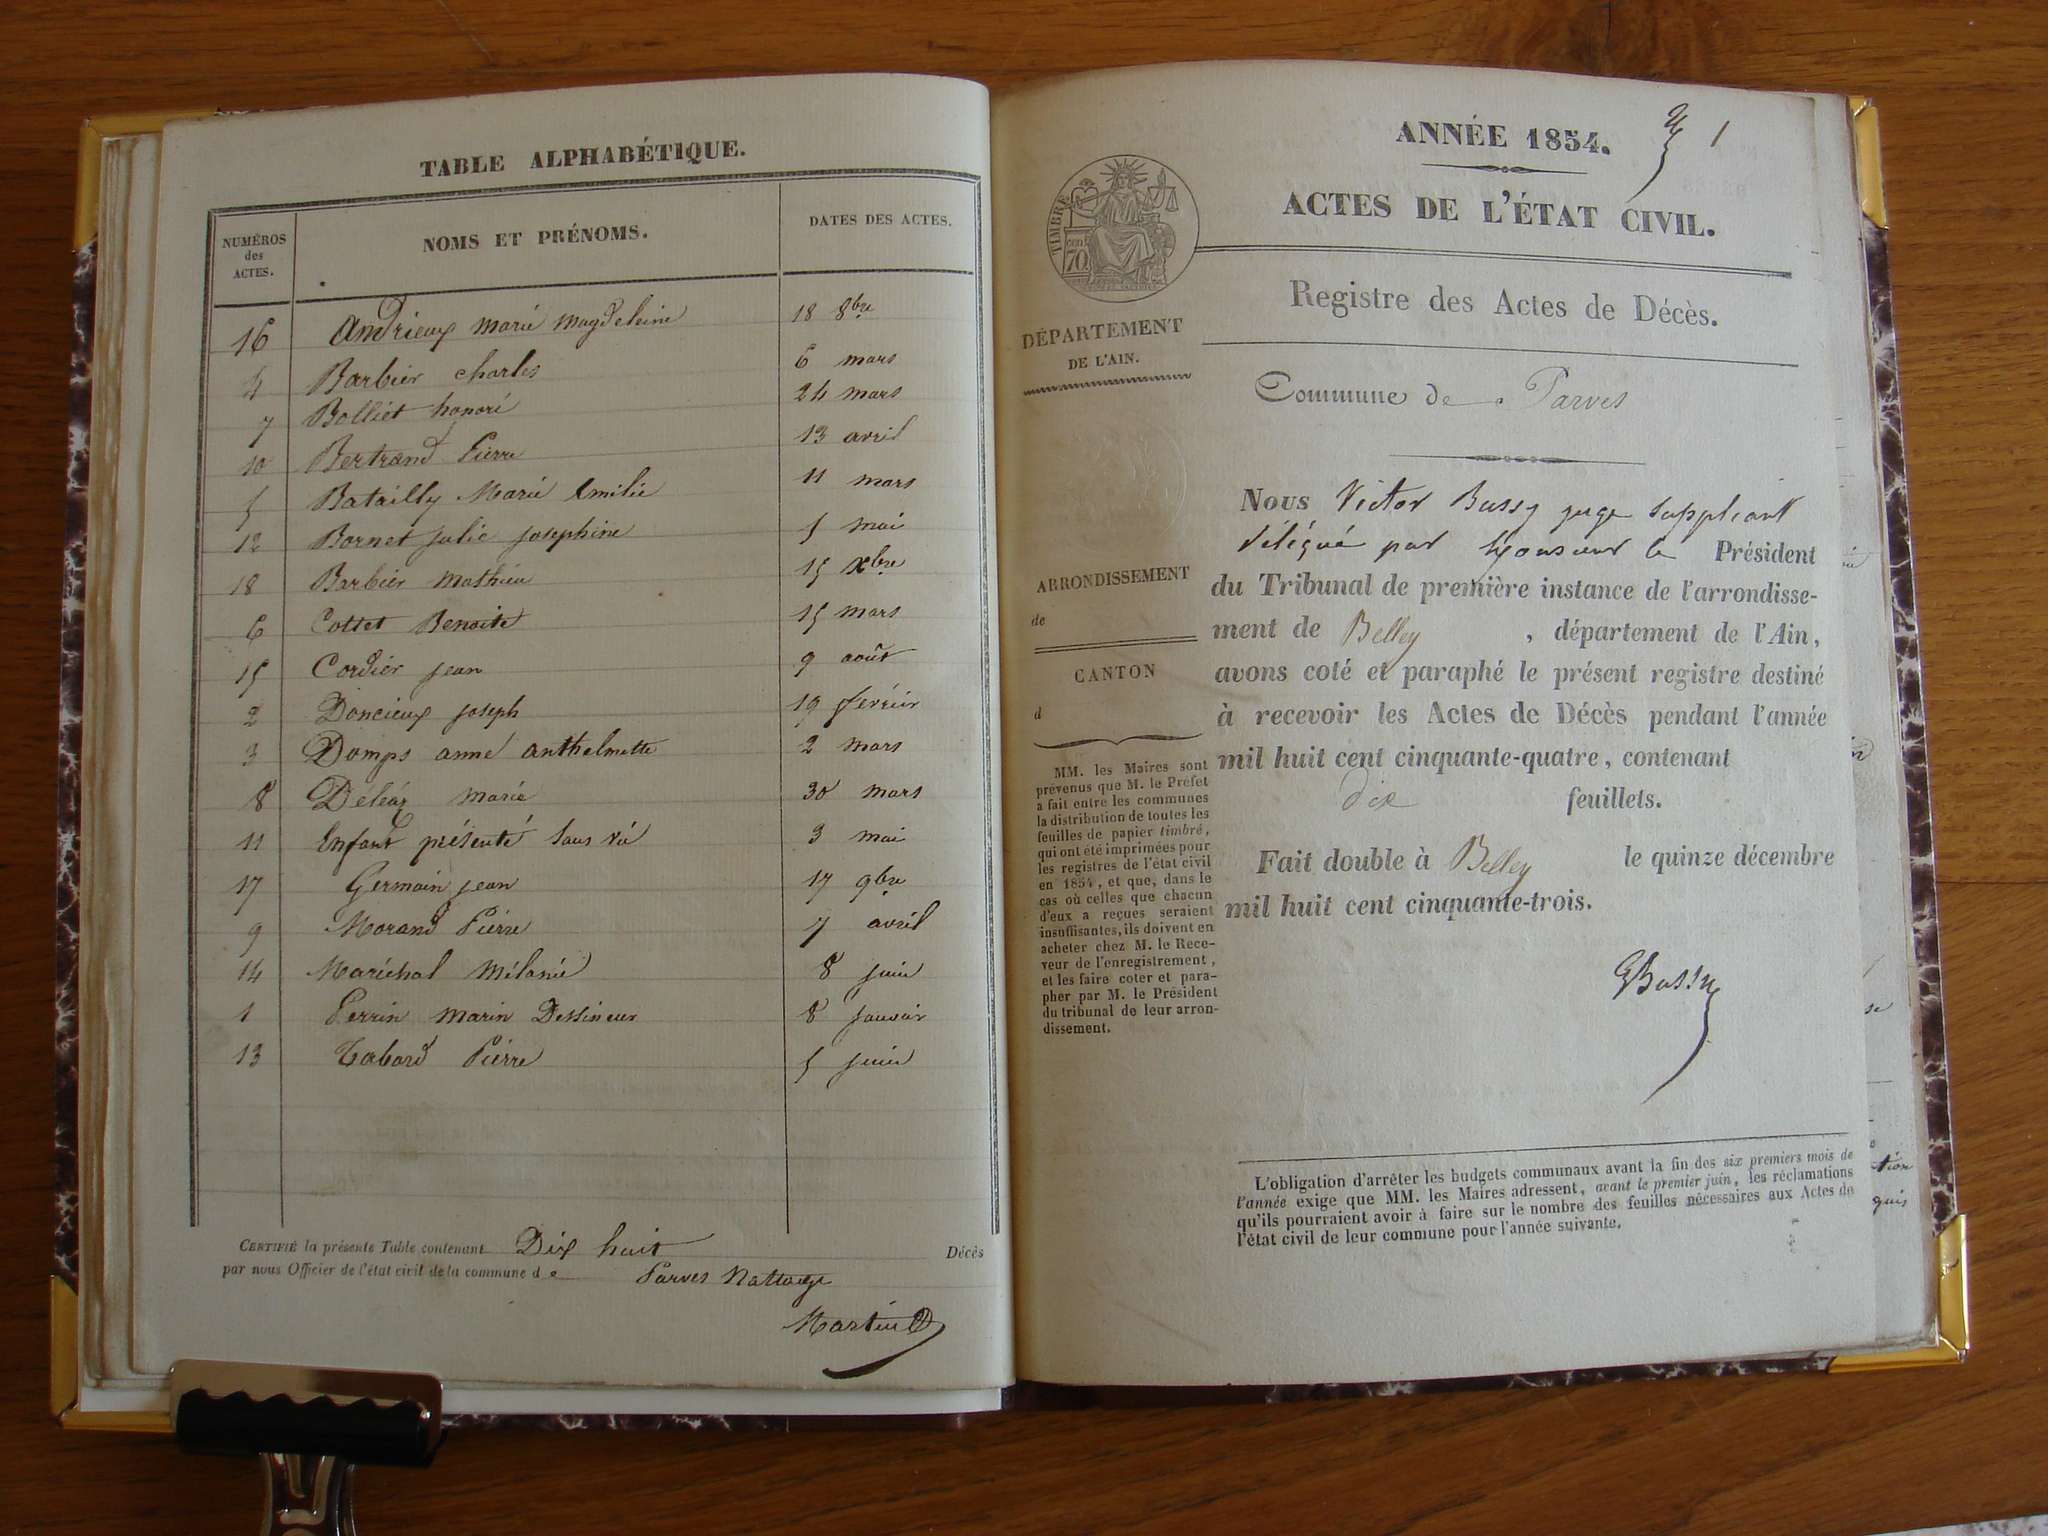 TABLE ALPHABÉTIQUE.
NUMÉROS des ACTES. NOMS ET PRÉNOMS. DATES DES ACTES.
16 Andrieux marie magdeleine 18 8bre
4 Barbier charles 6 mars
7 Bolliet honoré 24 mars
10 Bertrand Pierre 13 avril
5 Batailly Marie Emilie 11 mars
12 Bornet julie josephine 5 mai
18 Barbier mathieu 15 xbre
6 Cottet Benoite 15 mars
15 Cordier jean 9 août
2 Doncieux joseph 19 février
3 Domps anne anthelmette 2 mars
8 Déléaz marie 30 mars
11 Enfant présenté sans vie 3 mai
17 Germain jean 17 9bre
9 Morand Pierre 7 avril
14 Maréchal Mélanie 8 juin
1 Perrin marin Dessineur 8 janvier
13 Tabard Pierre 5 juin
CERTIFIÉ la présente Table contenant Dix huit Décès
par nous Officier de l'état civil de la commune de Parves Nattage
Martin
ANNÉE 1854. 1
ACTES DE L'ÉTAT CIVIL.
TIMBRE
70
Registre des Actes de Décès.
DÉPARTEMENT
DE L'AIN.
Commune de Parves
Nous Victor Bussy juge suppléant
délégué par Monsieur le Président
du Tribunal de première instance de l'arrondisse-
ment de Belley, département de l'Ain,
avons coté et paraphé le présent registre destiné
à recevoir les Actes de Décès pendant l'année
mil huit cent cinquante-quatre, contenant
dix feuillets.
Fait double à Belley le quinze décembre
mil huit cent cinquante-trois.
VBussy
ARRONDISSEMENT
de
CANTON
d
MM. les Maires sont
prévenus que M. le Préfet
a fait entre les communes
la distribution de toutes les
feuilles de papier timbré,
qui ont été imprimées pour
les registres de l'état civil
en 1854, et que, dans le
cas où celles que chacun
d'eux a reçues seraient
insuffisantes, ils doivent en
acheter chez M. le Rece-
veur de l'enregistrement,
et les faire coter et para-
pher par M. le Président
du tribunal de leur arron-
dissement.
L'obligation d'arrêter les budgets communaux avant la fin des six premiers mois de
l'année exige que MM. les Maires adressent, avant le premier juin, les réclamations
qu'ils pourraient avoir à faire sur le nombre des feuilles nécessaires aux Actes de
l'état civil de leur commune pour l'année suivante.